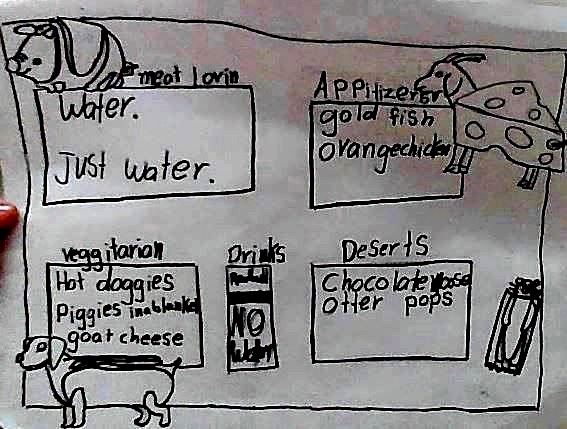 meat lovin
Water.
Just water.
Appitizers
gold fish
orangechicken
veggitarian
Hot doggies
Piggies in a blanket
goat cheese
Drinks
NO
Water
Deserts
Chocolate
otter pops